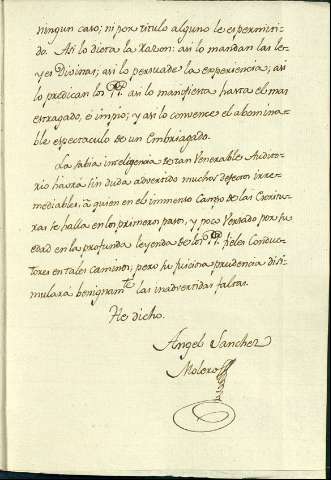 ningun caso; ni por titulo alguno le es permiti-
do. Asi lo dicta la Razon: asi lo mandan las le-
yes Divinas; asi lo persuade la experiencia; asi
lo predican los PP. asi lo manifiesta hasta el mas
estragado, e impio; y asi lo convence el abomina-
ble espectaculo de un Embriagado.
La sabia inteligencia de tan Venerable Audito-
rio havrá sin duda advertido muchos defectos irre-
mediables, à quien en el immenso Campo de las Escritu-
ras se halla en los primeros pasos, y poco Versado por su
edad en la profunda leyenda de los PP. fieles Conduc-
tores en tales caminos; pero su juiciosa prudencia disi-
mulará benignamte. las inadvertidas faltas.
He dicho.
Angel Sanchez
Molero